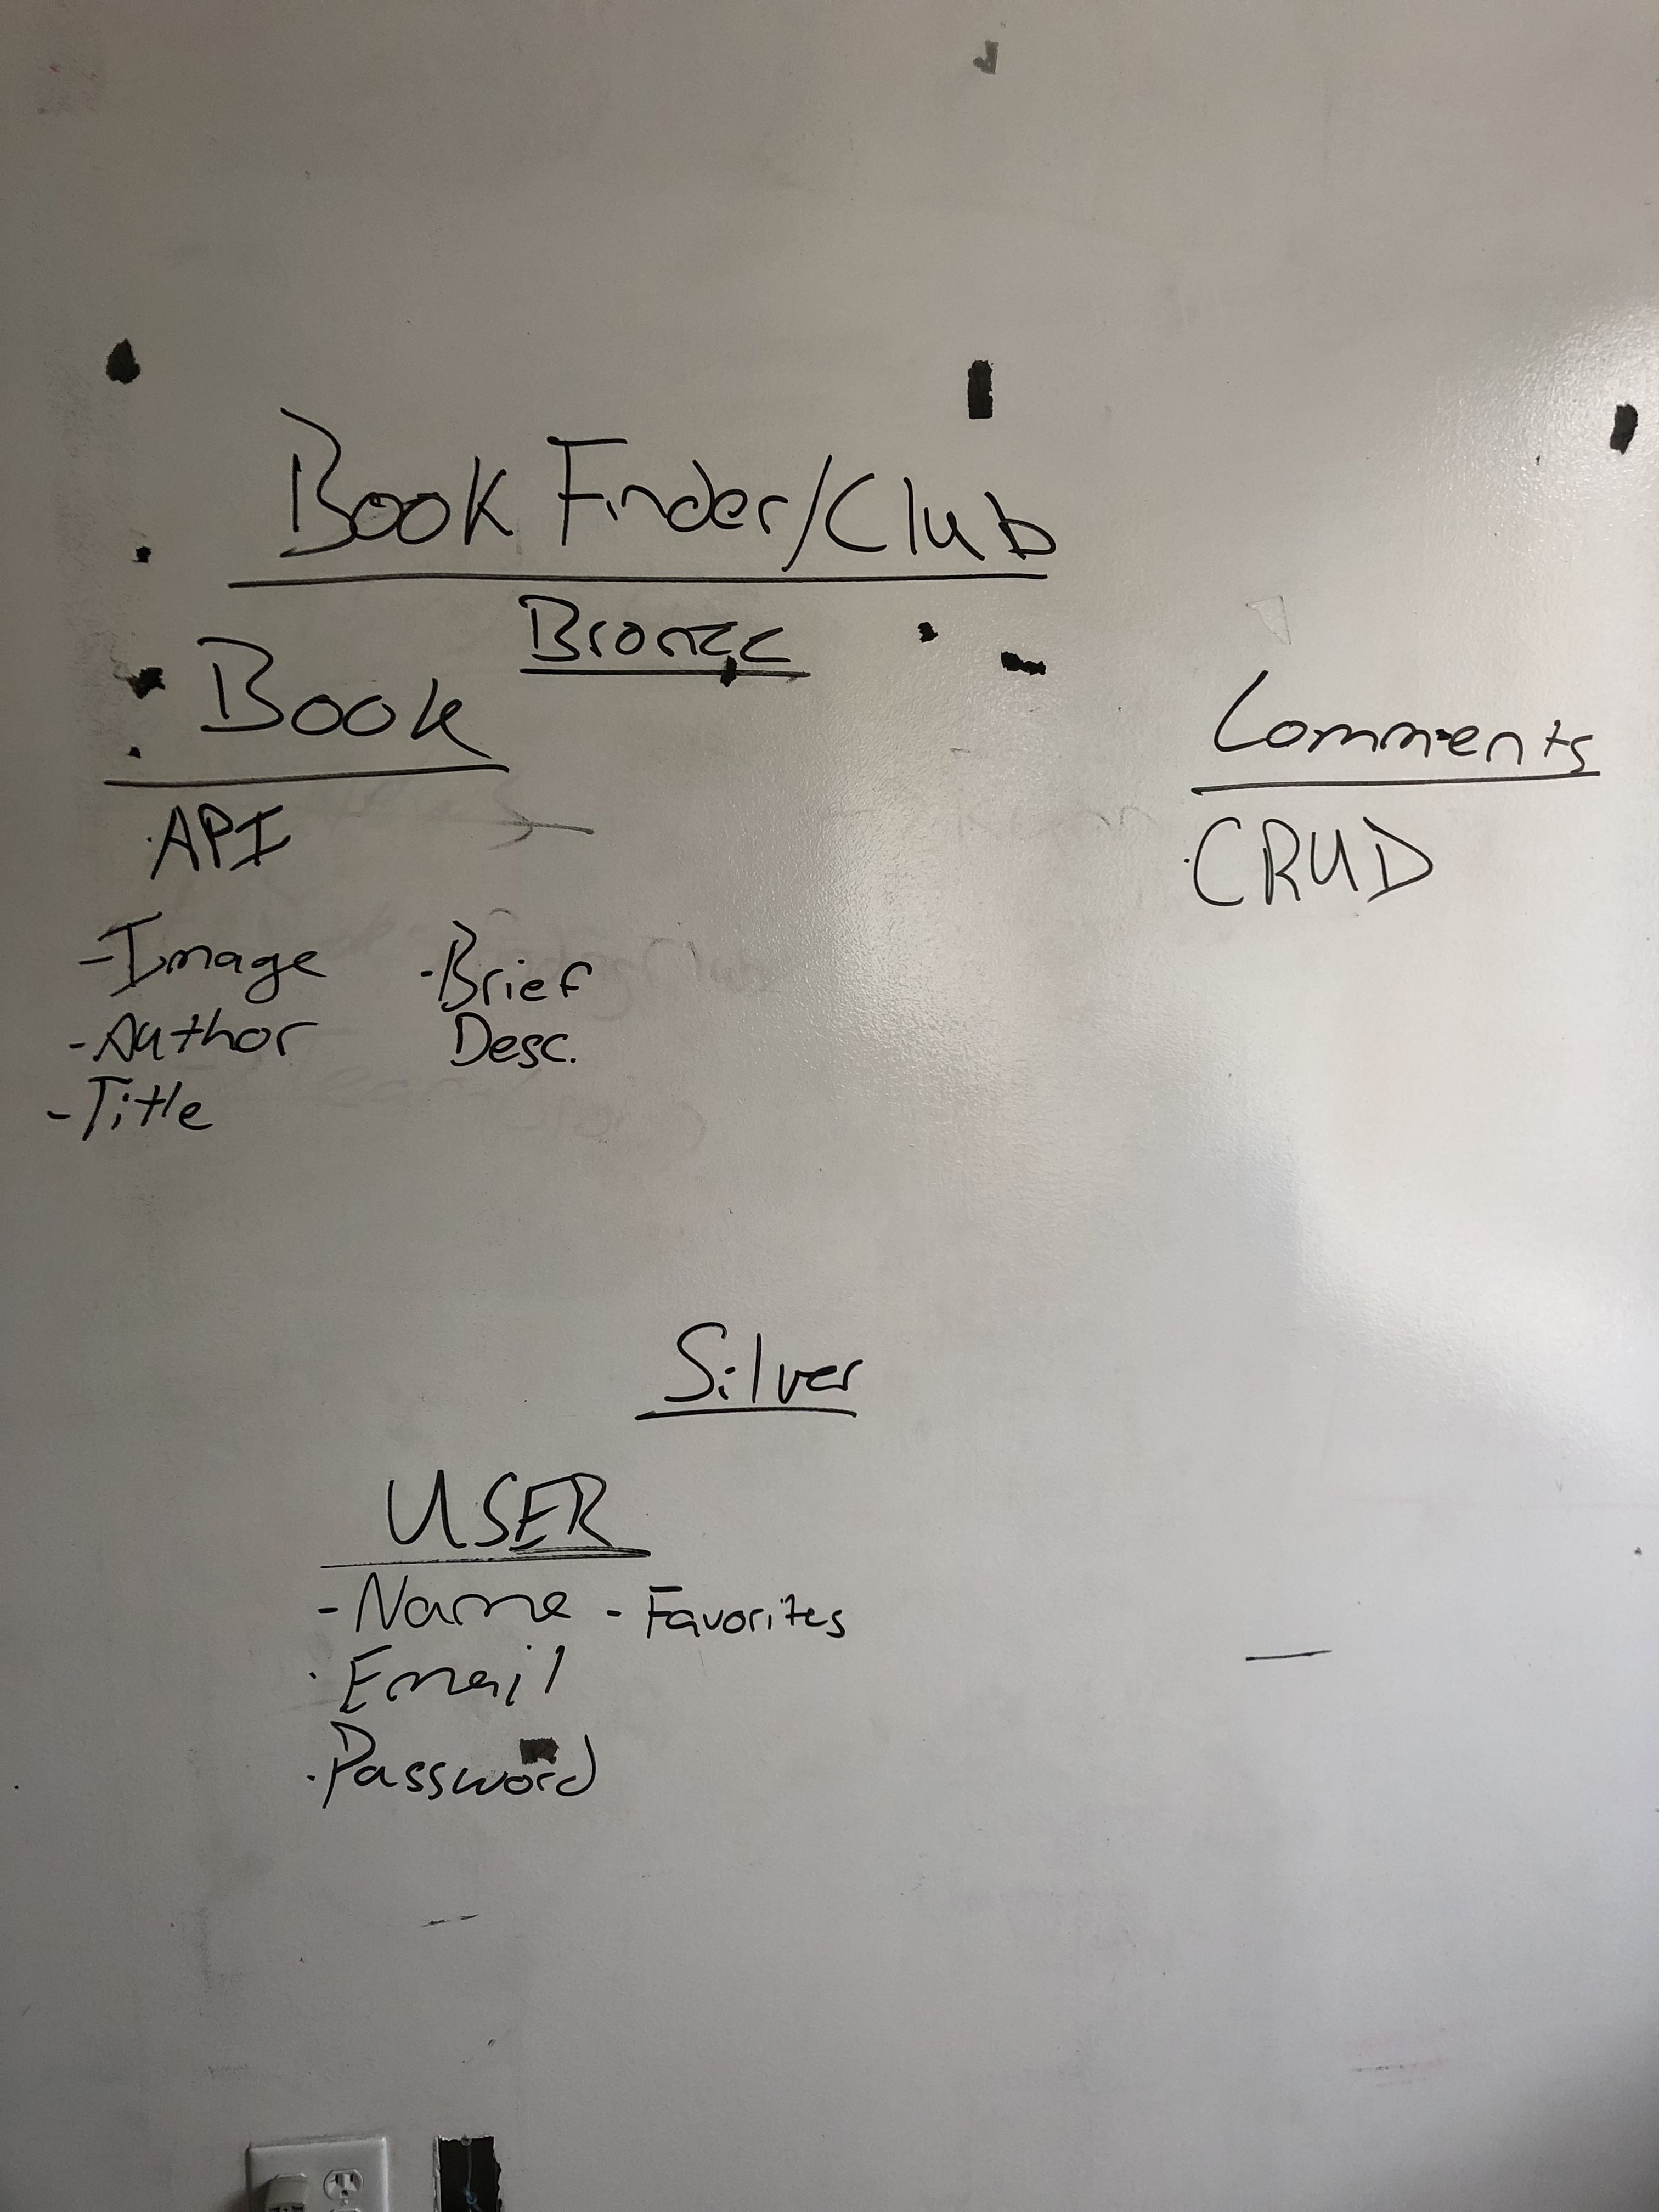 Book Finder/Club
Bronze
Book
·API
-Image
-Author
-Title
-Brief
Desc.
Comments
·CRUD
Silver
USER
-Name - Favorites
·Email
·Password